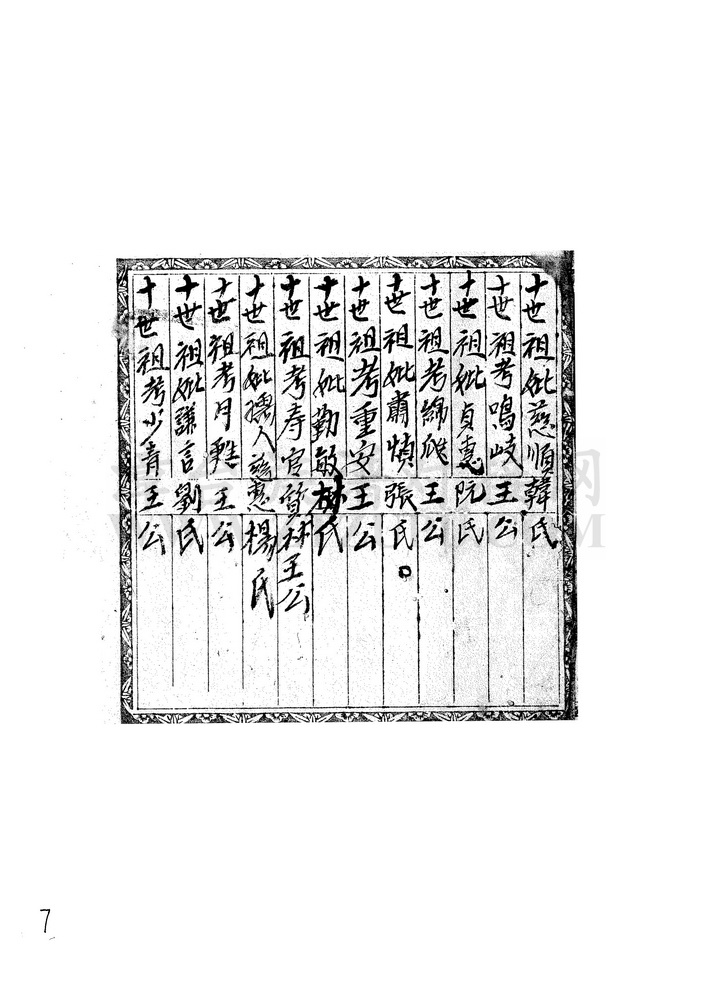 十世祖妣慈順韓氏
十世祖考鳴岐王公
十世祖妣貞惠阮氏
十世祖考綿 王公
十世祖妣肅慎張氏
十世祖考重安王公
十世祖妣勤敏林氏
十世祖考寿官質林王公
十世祖妣孺人慈惠楊氏
十世祖考月甦王公
十世祖妣謙言劉氏
十世祖考少青王公
7